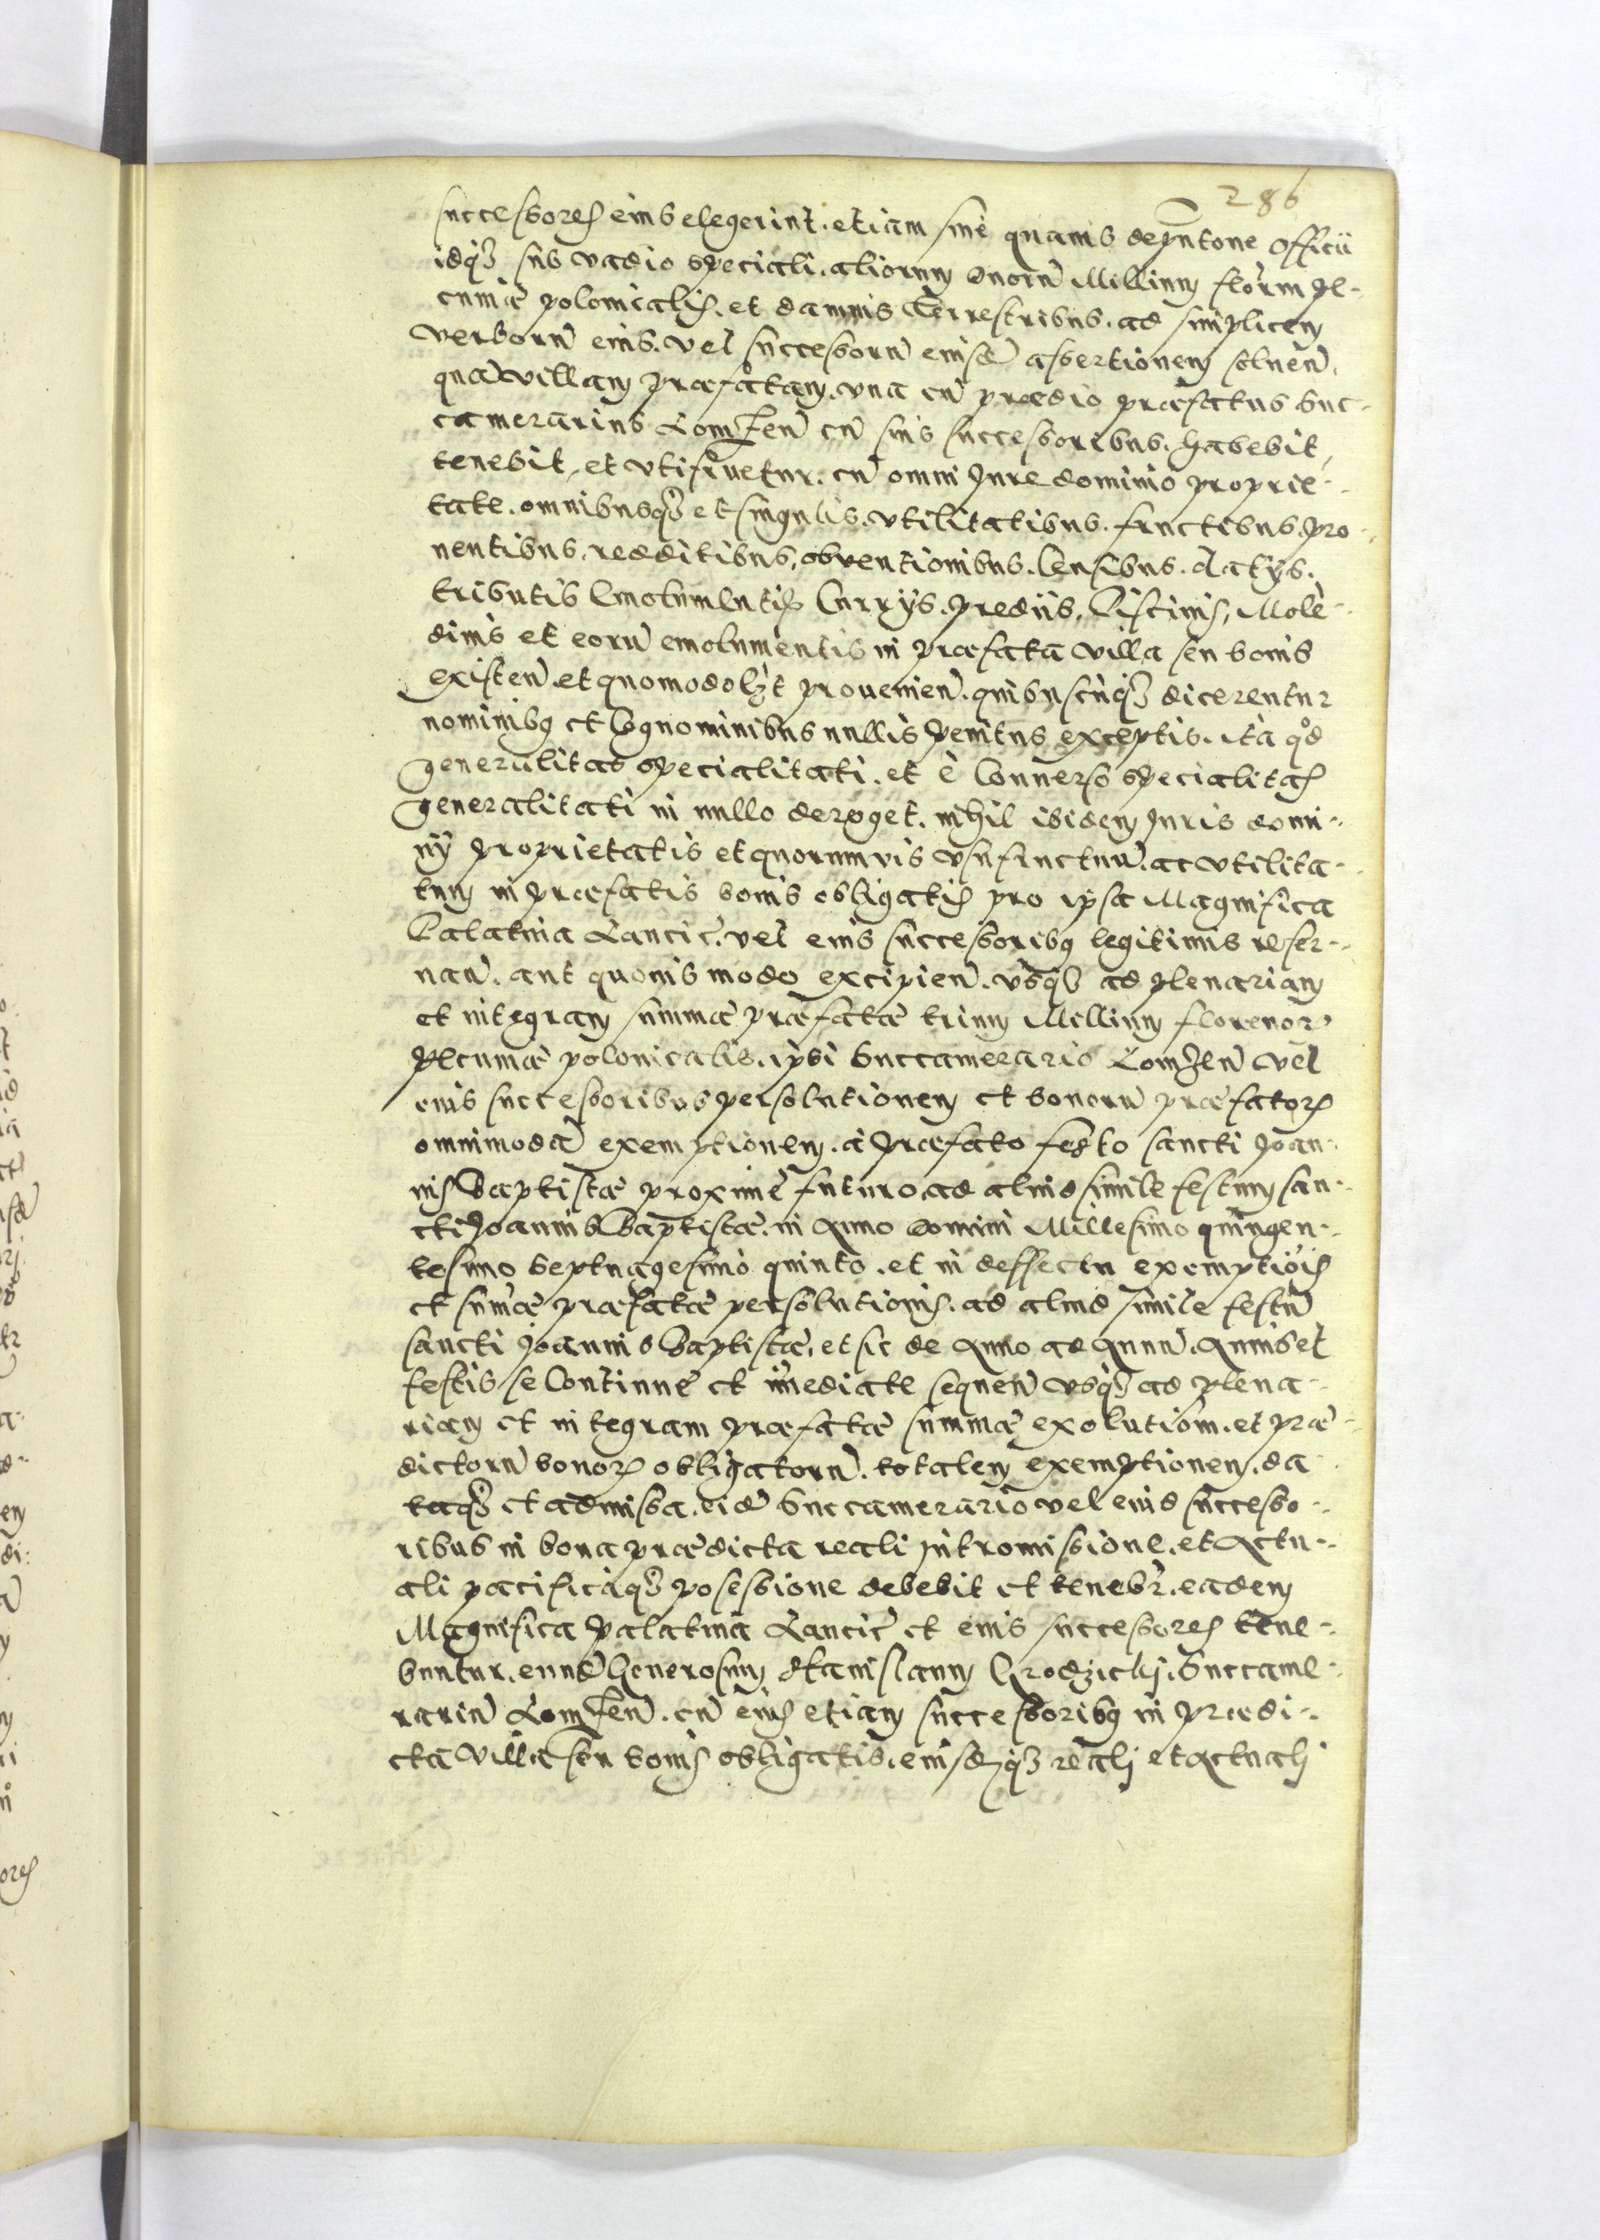 286
successores eius elegerint. etiam sine quauis depũtone officii
idq3 sub vadio speciali. aliorum duorũ Millium flor̃m pe-
cuniæ polonicalis. et damnis Terrestribus. ad simplicem
verborũ eius. vel successorũ eiusdẽ assertionem soluen̄.
quã villam præfatam. vna cũ prædio præfatus Suc-
camerarius Lomzen̄ cũ suis successoribus. habebit,
tenebit, et vtifruetur. cũ omni Jure dominio proprie-
tate. omnibusq3 et singulis. vtilitatibus. fructibus. pro-
uentibus. redditibus. obuentionibus. Censibus. datÿs.
tributis Emolumentis Curÿs. prediis. Piscinis, Mole-
dinis et eorũ emolumentis in præfata villa seu bonis
existen̄. et quomodolz̃t prouenien̄. quibuscũq3 dicerentur
nominibg et Cognominibus nullis penitus exceptis. ita qd
generalitas specialitati. et è Conuerso specialitas
generalitati in nullo deroget. nihil ibidem Juris domi-
nÿ proprietatis et quorumuis vsufructuũ. ac vtilita-
tum in præfatis bonis obligatis pro ipsa Magnifica
Palatina Lancic̃. vel eius successoribg legitimis reser-
uan̄. aut quouis modo excipien̄. vsq3 ad plenariam
et integram summæ præfatæ trium Millium florenor̃
pecuniæ polonicalis. ipsi Succamerario Lomzen̄ vel
eius successoribus persolutionem et bonorũ præfatorꝝ
omnimodã exemptionem. à præfato festo sancti Joan-
nis Baptistæ proximè futuro. ad aliud simile festum san-
cti Joannis Baptistæ. in Anno Domini Millesimo quingen-
tesimo Septuagesimo quinto. et in deffectu exemptiõis
et sum̃æ præfatæ persolutionis. ad aliud simile festũ
sancti Joannis Baptistæ. et sic de Anno ad Annũ. Annis et
festis se Continuè et im̃ediate sequen̄ vsq3 ad plena-
riam et integram præfatæ summæ exolutiõm. et præ-
dictorũ bonorꝝ obligatorũ. totalem exemptionem. da-
taq3 et admissa. eidẽ Succamerario vel eius successo-
ribus in bona prædicta reali Jntromissione. et Actu-
ali pacificaq3 posessione debebit et tenebr̃. eadem
Magnifica Palatina Lancic̃ et eius successores tene-
buntur. eundẽ Generosum Stanislaum Grodzicki. Succame-
rariũ Lomzen̄. cũ eius etiam successoribg in prædi-
cta villa seu bonis obligatis. eiusdemq3 reali et Actuali